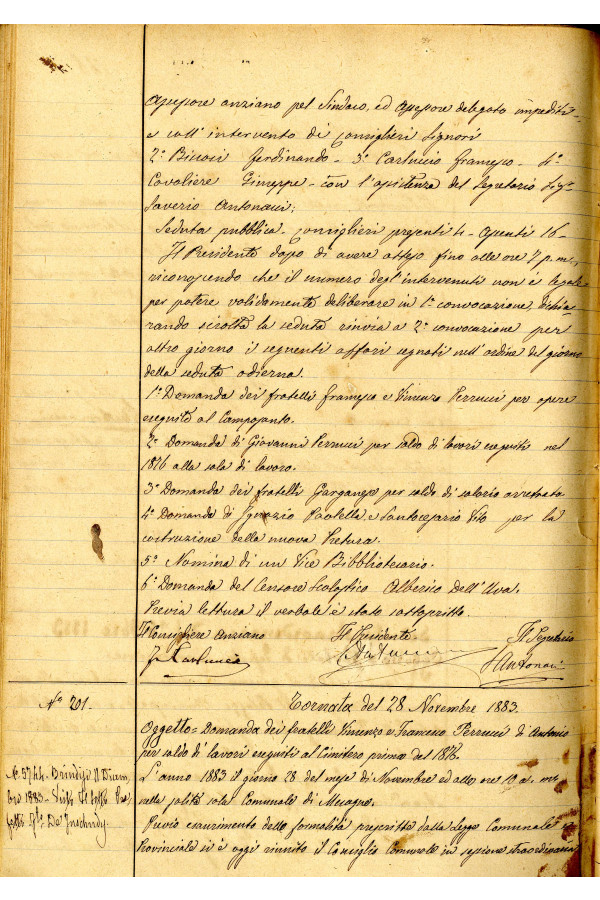 Assessore anziano pel Sindaco, ed Assessore delegato impediti
e coll'intervento di Consiglieri Signori
2° Ferdinando - 3° Carluccio Francesco - 4°
Cavaliere Giuseppe - con l'assistenza del Segretario Sigr
Saverio Antonaci;
Seduta pubblica - Consiglieri presenti 4 - Assenti 16 -
Il Presidente dopo di avere atteso fino alle ore 2 p.m.,
riconoscendo che il numero degl'intervenuti non è legale
per potere validamente deliberare in 1a convocazione, dichia
rando sciolta la seduta rinvia a 2a convocazione per
altro giorno i seguenti affari segnati nell'ordine del giorno
della seduta odierna.
1° Domanda dei fratelli Francesco e Vincenzo Perrucci per opere
eseguite al Camposanto.
2° Domanda di Giovanni Perrucci per saldo di lavori eseguiti nel
1876 alla sala di lavoro.
3° Domanda dei fratelli Gargaro per saldo di salario arretrato
4° Domanda di Ignazio Paolella e Santocesario Vito per la
costruzione della nuova Pretura.
5° Nomina di un Vice Bibbliotecario.
6° Domanda del Censore Scolastico Alberico Dell'Uva.
Previa lettura il verbale è stato sottoscritto.
Il Consigliere Anziano Il Presidente Il Segretario
F. Carluccio S Antonaci
N° 201. Tornata del 28 Novembre 1883.
Oggetto = Domanda dei fratelli Vincenzo e Francesco Perrucci di Antonio
per saldo di lavori eseguiti al Cimitero prima del 1876.
L'anno 1883 il giorno 28 del mese di Novembre ed alle ore 10 a. m.
nella solita sala Comunale di Mesagne.
Previo esaurimento delle formalità prescritte dalla Legge Comunale e
Provinciale si è oggi riunito il Consiglio Comunale in sessione straordinaria
N. 5744. Brindisi 11 Dicem
bre 1883 - Visto Il Sotto Pre
fetto